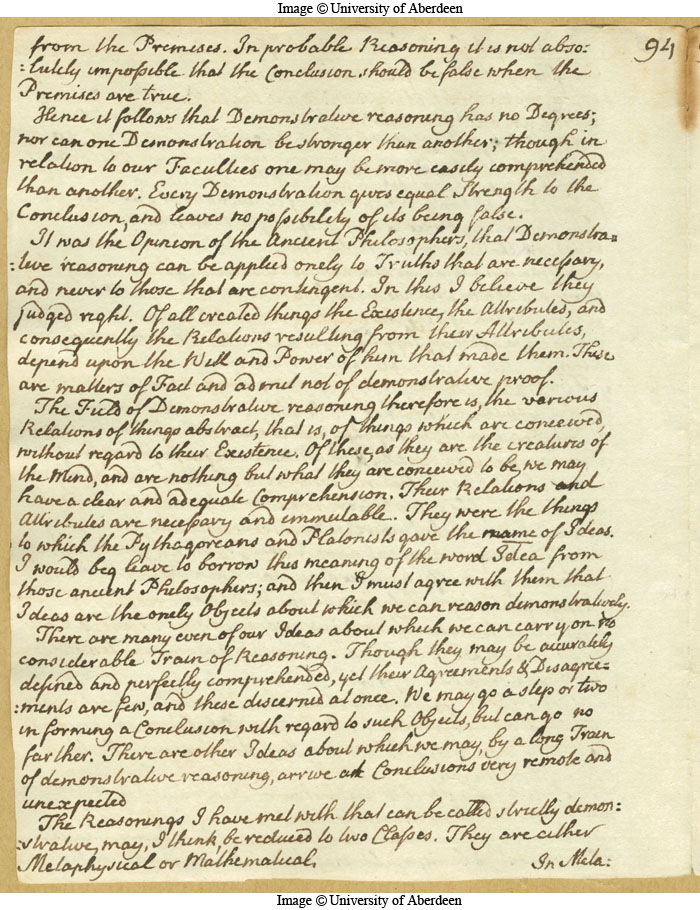 Image © University of Aberdeen
94
from the Premises. In probable Reasoning it is not abso:
:lutely impossible that the Conclusion should be false when the
Premises are true.
Hence it follows that Demonstrative reasoning has no Degrees;
nor can one Demonstration be stronger than another; though in
relation to our Faculties one may be more easily comprehended
than another. Every Demonstration gives equal Strength to the
Conclusion, and leaves no possibility of its being false.
It was the Opinion of the Ancient Philosophers, that Demonstra=
:tive reasoning can be applied onely to Truths that are necessary,
and never to those that are contingent. In this I believe they
judged right. Of all created things the Existence, the Attributes, and
consequently the Relations resulting from their Attributes,
depend upon the Will and Power of him that made them. These
are matters of Fact and admit not of demonstrative proof.
The Field of Demonstrative reasoning therefore is, the various
Relations of things abstract, that is, of things which are conceived,
without regard to their Existence. Of these, as they are the creatures of
the Mind, and are nothing but what they are conceived to be, we may
have a clear and adequate Comprehension. Their Relations and
Attributes are necessary and immutable. They were the things
to which the Pythagoreans and Platonists gave the name of Ideas.
I would beg leave to borrow this meaning of the word Idea from
those ancient Philosophers; and then I must agree with them that
Ideas are the onely Objects about which we can reason demonstratively.
There are many even of our Ideas about which we can carry on no
considerable Train of Reasoning. Though they may be accurately
defined and perfectly comprehended, yet their Agreements & Disagree=
:ments are few, and these discerned at once. We may go a step or two
in forming a Conclusion with regard to such Objects, but can go no
farther. There are other Ideas about which we may, by a long Train
of demonstrative reasoning, arrive at Conclusions very remote and
unexpected
The Reasonings I have met with that can be called strictly demon:
:strative, may, I think, be reduced to two Classes. They are either
Metaphysical or Mathematical.
In Meta:
Image © University of Aberdeen